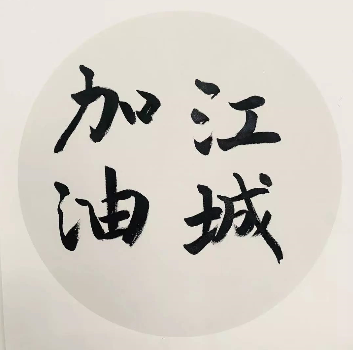 江城
加油